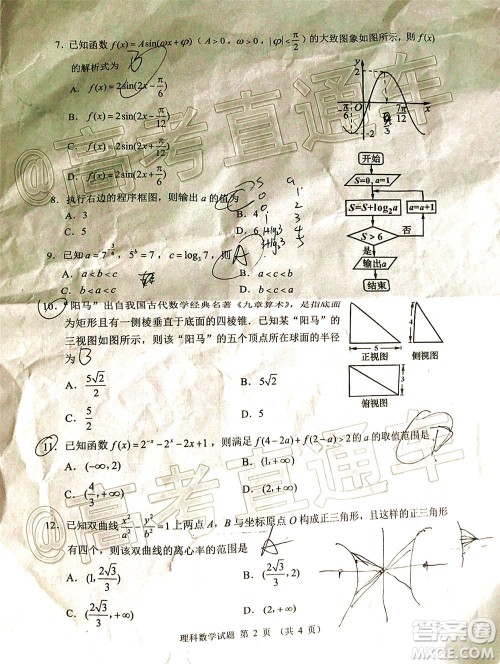 7. 已知函数 f(x)=Asin(ωx+φ)(A>0,ω>0,|φ|<π/2) 的大致图象如图所示，则 f(x)
的解析式为 B
A. f(x)=2sin(2x-π/6)
B. f(x)=2sin(2x-π/3)
C. f(x)=2sin(2x+π/6)
D. f(x)=2sin(2x+π/3)
y
2
-π/6
O
7π/12
x
-2
8. 执行右边的程序框图，则输出 a 的值为
A. 3
B. 4
C. 5
D. 6
S a
0 1
开始
S=0, a=1
S=S+log₂a
a=a+1
S>6
否
是
输出a
结束
9. 已知 a=7^(3/4), 5^b=7, c=log₃7, 则 A
B. a<c<b
C. b<a<c
D. b<c<a
10. “阳马”出自我国古代数学经典名著《九章算术》，是指底面
为矩形且有一侧棱垂直于底面的四棱锥，已知某“阳马”的
三视图如图所示，则该“阳马”的五个顶点所在球面的半径
为 B
A. 5√2/2
B. 5√2
C. 5/2
D. 5
5
4
正视图
侧视图
3
俯视图
11. 已知函数 f(x)=2^(-x)-2^x-2x+1，则满足 f(4-2a)+f(2-a)>2 的 a 的取值范围是 D
A. (-∞,2)
B. (2,+∞)
C. (4/3,+∞)
D. (-∞,+∞)
12. 已知双曲线 x²/a²-y²/b²=1 上两点 A、B 与坐标原点 O 构成正三角形，且这样的正三角形
有四个，则该双曲线的离心率的范围是 A
A. (1,2√3/3)
B. (2√3/3,2)
C. (2√3/3,+∞)
D. (2,+∞)
理科数学试题 第 2 页 （共 4 页）
@高考直通车
@高考直通车